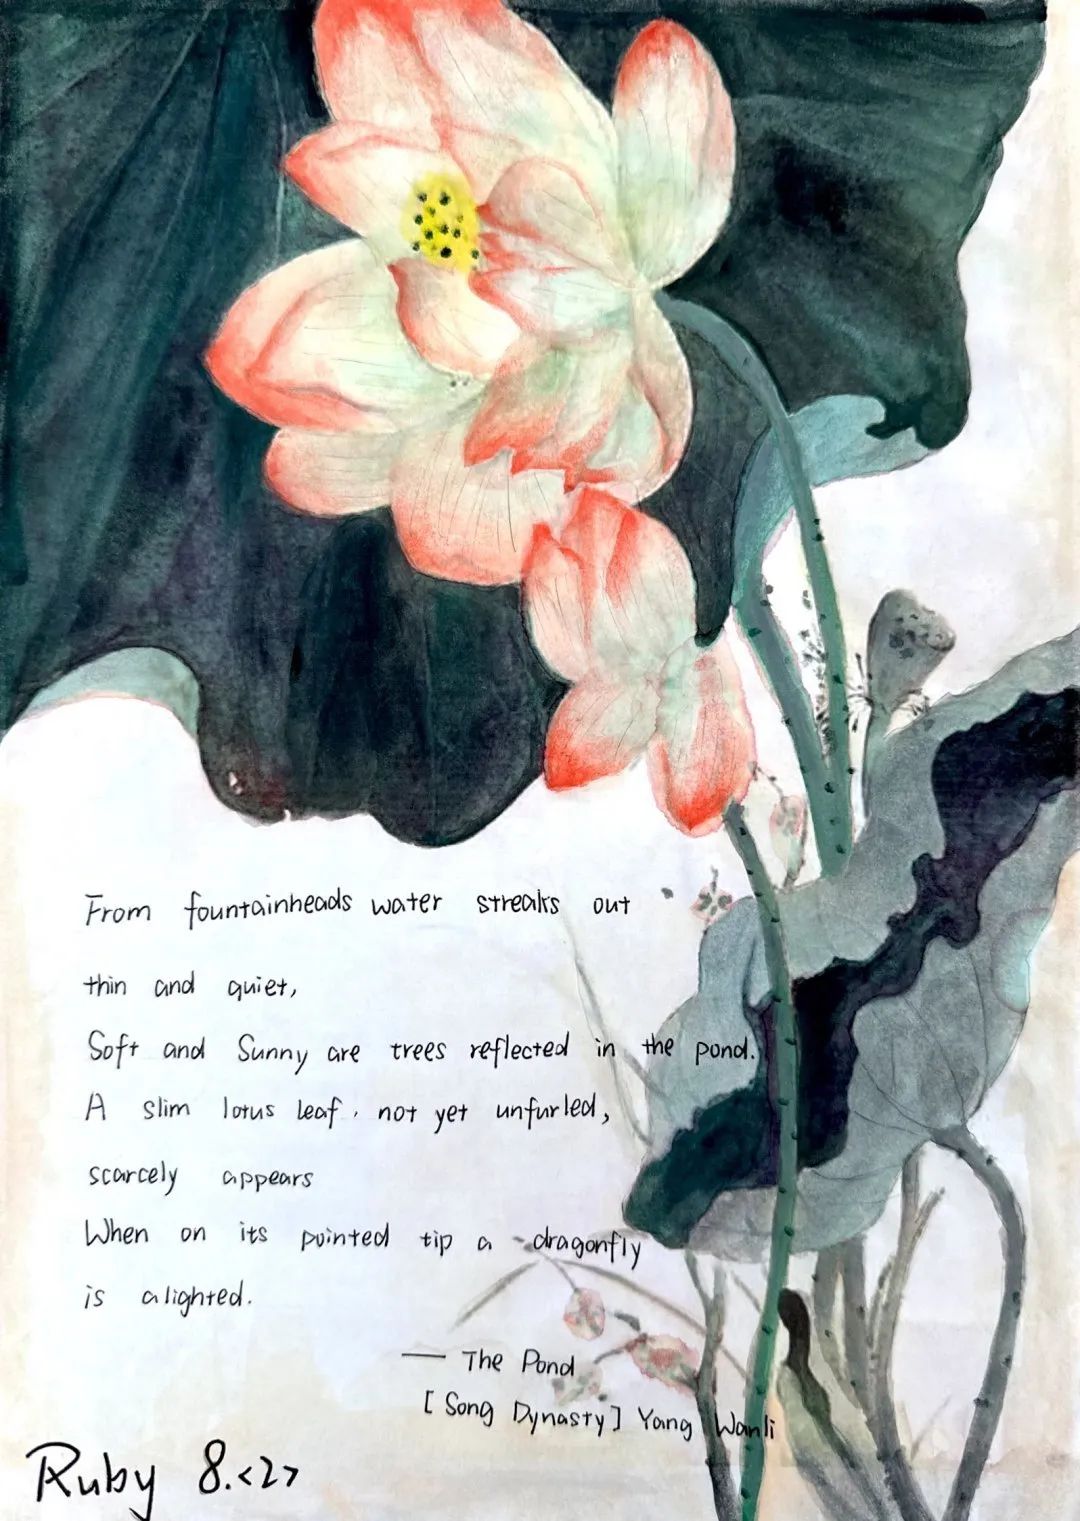 From fountainheads water streaks out
thin and quiet,
Soft and Sunny are trees reflected in the pond.
A slim lotus leaf, not yet unfurled,
scarcely appears
When on its pointed tip a dragonfly
is alighted.
— The Pond
[Song Dynasty] Yang Wanli
Ruby 8.<2>